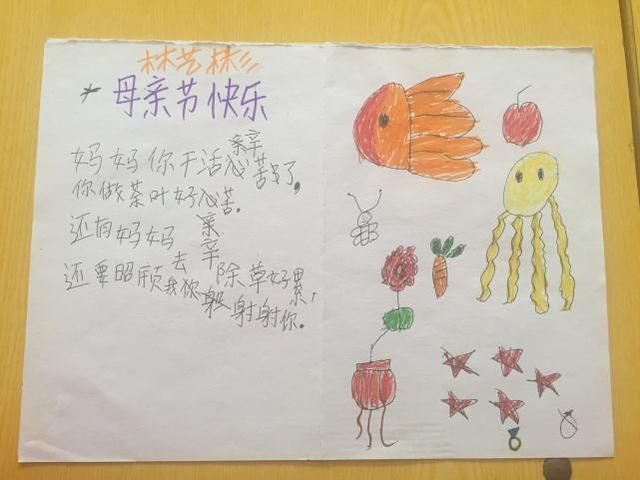 林艺彬
母亲节快乐
亲辛
妈妈你干活心苦了,
你做茶叶好心苦。
亲辛
还有妈妈
还要照顾我你去除草好累,
射射你。